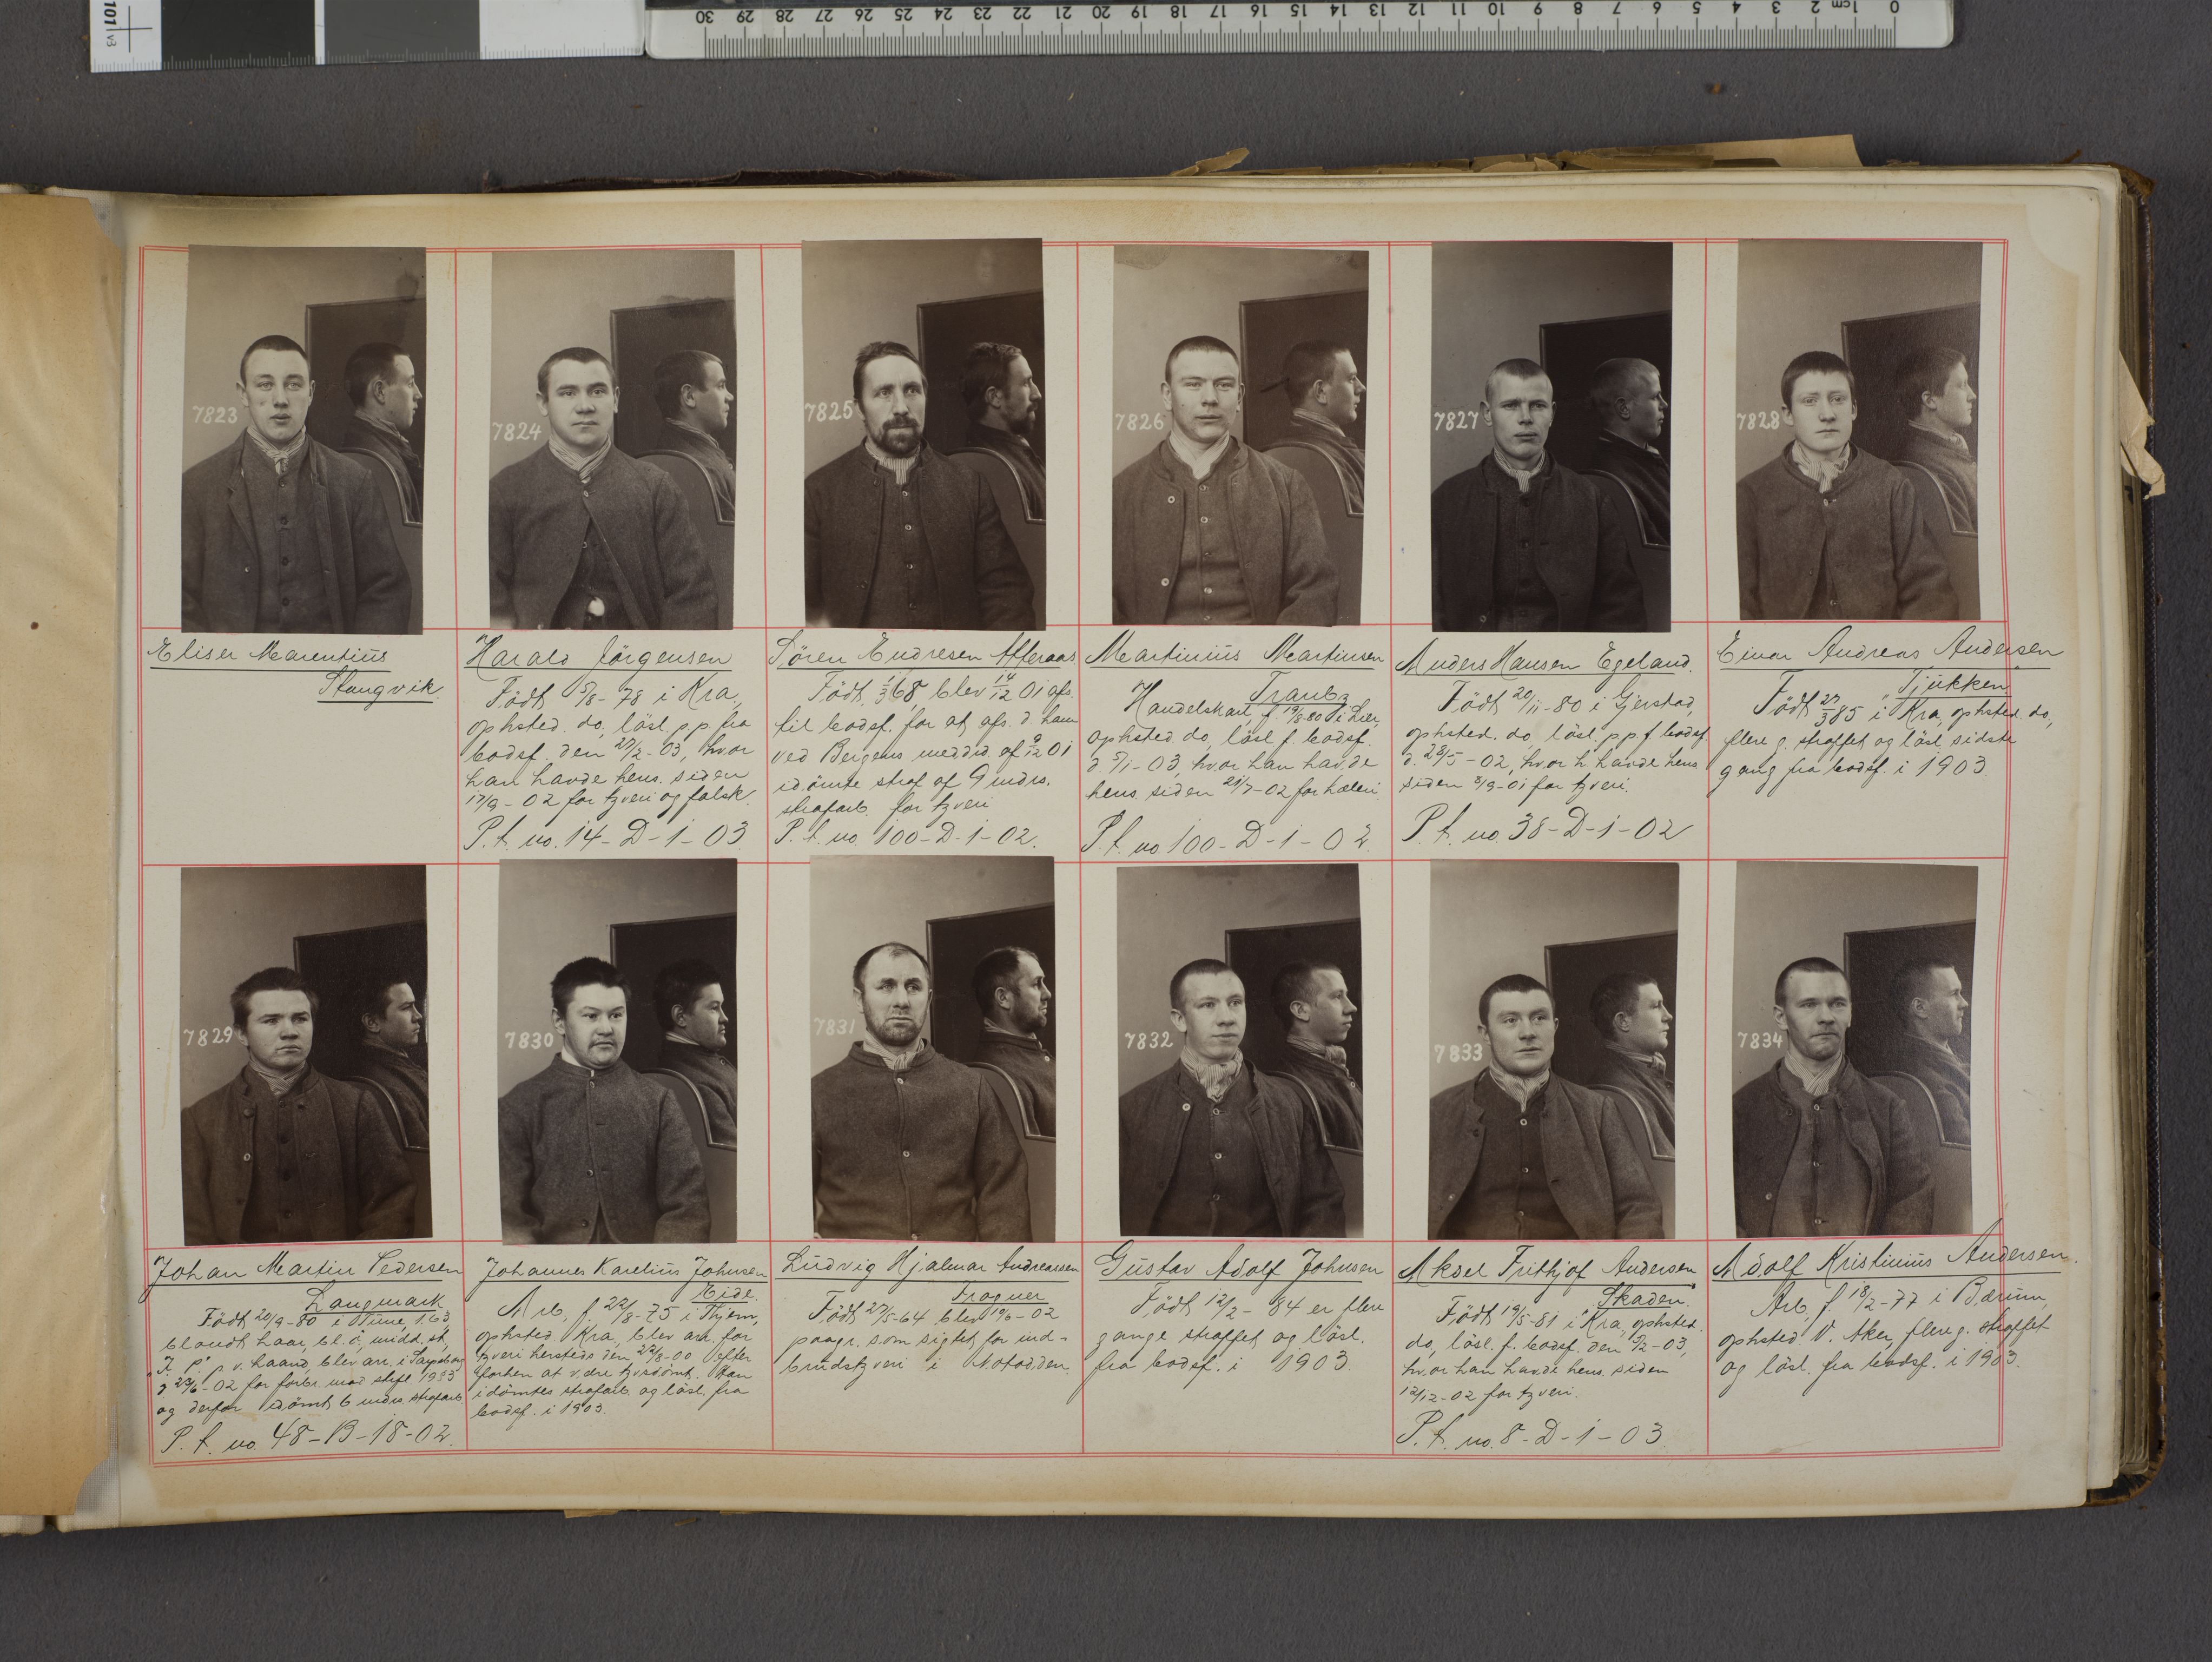 101 v3
30 29 28 27 26 25 24 23 22 21 20 19 18 17 16 15 14 13 12 11 10 9 8 7 6 5 4 3 2 1cm 0
7823
Eliser Marentius
Stangvik.
7824
Harald Jörgensen
Född 5/8-78 i Kra.,
ophsted. do, lösl. p.p. fra
bodsf. den 27/2-03, hvor
han havde hens. siden
17/9-02 for tyveri og falsk.
P. f. no. 14-D-1-03.
7825
Sören Endresen Afferaas
Född 1/3 68, blev 14/12 01 afs.
til bodsf. for at afs. d. ham
ved Bergens meddsd af 9/12 01
idömte straf af 9 mdrs.
strafarb. for tyveri
P. f. no. 100-D-1-02.
7826
Martinius Martinsen
Traub,
Handelskarl, f. 19/8-80 i Lier,
ophsted. do, lösl. f. bodsf.
d. 5/1-03, hvor han havde
hens. siden 21/7-02 for hæleri.
P. f. no. 100-D-1-02.
7827
Anders Hansen Egeland.
Född 20/11-80 i Gjerstad,
ophsted. do, lösl. p.p. f. bodsf.
d. 28/5-02, hvor h. havde hens.
siden 3/9-01 for tyveri.
P. f. no. 38-D-1-02
7828
Einar Andreas Andersen
"Tjukken"
Född 27/3 85 i Kra, ophsted. do,
flere g. straffet og lösl. sidste
gang fra bodsf. i 1903.
7829
Johan Martin Pedersen
Langmark
Född 20/9-80 i Tune, 163,
blondt haar, bl. ö, midd. st,
J. P. p. v. haand, blev arr. i Sarpsborg
d. 23/6-02 for forbr. mod
og derfor idömt 6 mdrs. strafarb.
P. f. no. 48-B-18-02.
7830
Johannes Karelius Johnsen
Eide.
Arb., f. 22/8-75 i
ophsted. Kra, blev arr. for
tyveri hersteds den 22/8-00 efter
forhen at være tyvsdömt. Han
idömtes strafarb. og lösl. fra
bodsf. i 1903.
7831
Ludvig Hjalmar Andreassen
Frogner
Född 27/5-64 blev 19/9-02
paagr. som sigtet for ind-
brudstyveri i Notodden.
7832
Gustav Adolf Johnsen
Född 12/2-84 er flere
gange straffet og lösl.
fra bodsf. i 1903.
7833
Aksel Frithjof Andersen
Skaden.
Född 19/5-81 i Kra, ophsted.
do, lösl. f. bodsf. den 5/2-03,
hvor han havde hens. siden
12/12-02 for tyveri.
P. f. no. 8-D-1-03.
7834
Adolf Kristinius Andersen.
Arb., f. 18/2-77 i Bærum,
ophsted. V. Aker, flere g. straffet
og lösl. fra bodsf. i 1903.